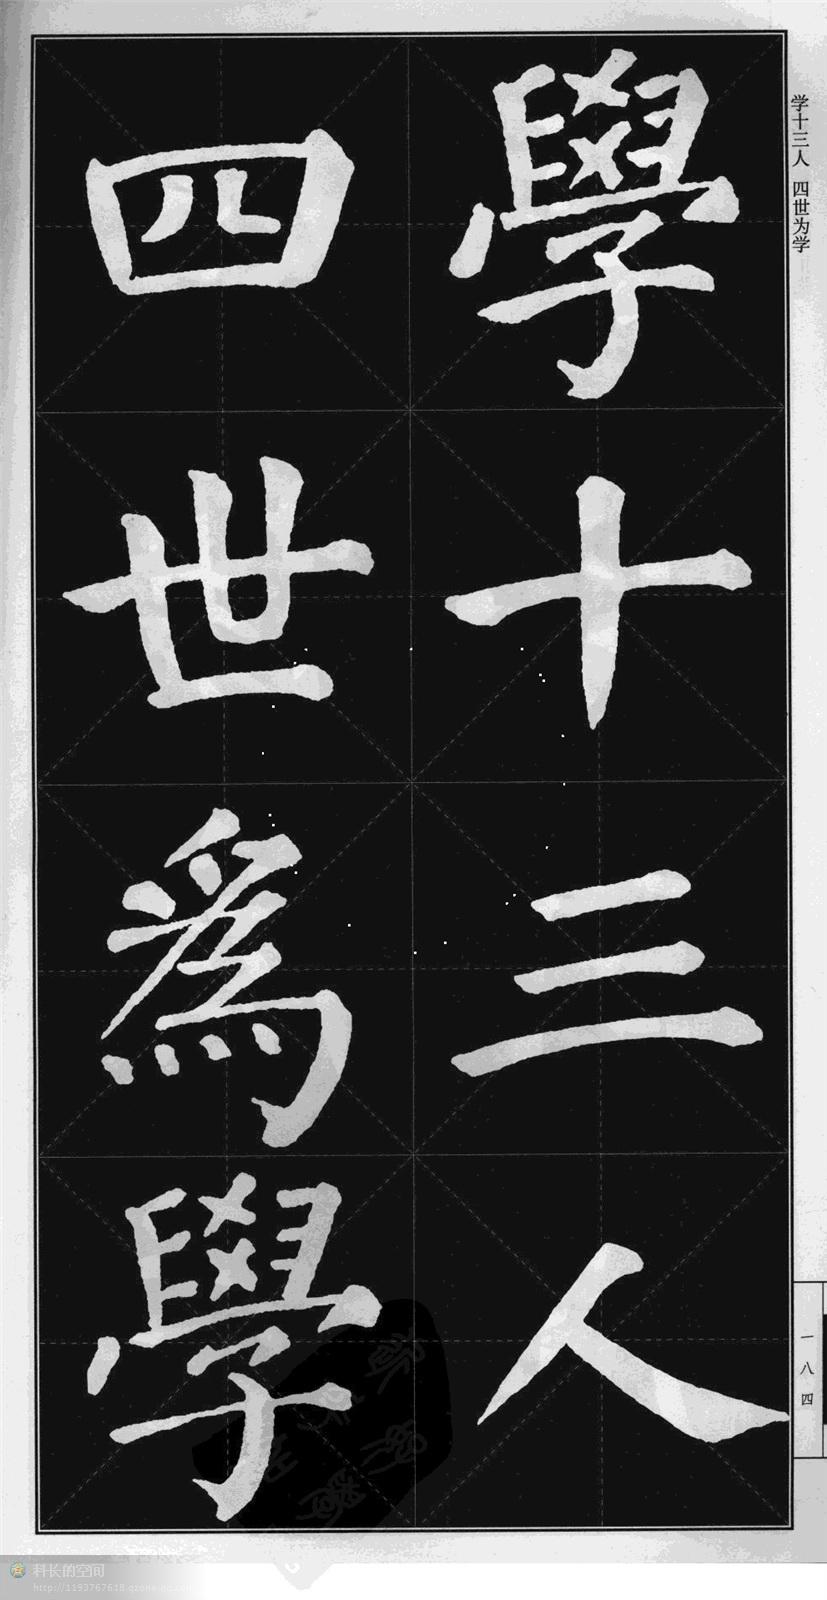 学十三人 四世为学
學十三人
四世爲學
一八四
科长的空间
http://1193767618.qzone.qq.com